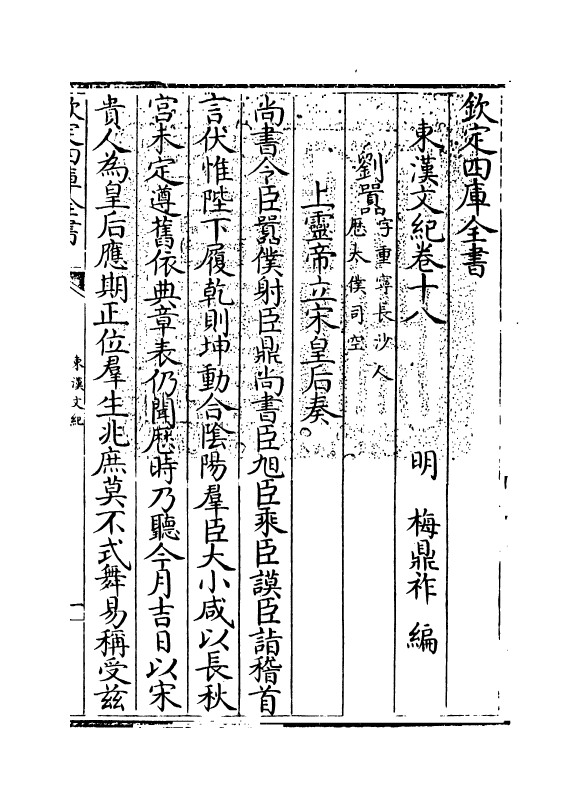 欽定四庫全書
東漢文紀卷十八
明 梅鼎祚 編
劉囂
字重寧長沙人
歷太僕司空
上靈帝立宋皇后奏
尚書令臣囂僕射臣鼎尚書臣旭臣乘臣謨臣詣稽首
言伏惟陛下履乾則坤動合陰陽羣臣大小咸以長秋
宮未定遵舊依典章表仍聞歷時乃聽今月吉日以宋
貴人為皇后應期正位羣生兆庶莫不式舞易稱受兹
欽定四庫全書
東漢文紀
一